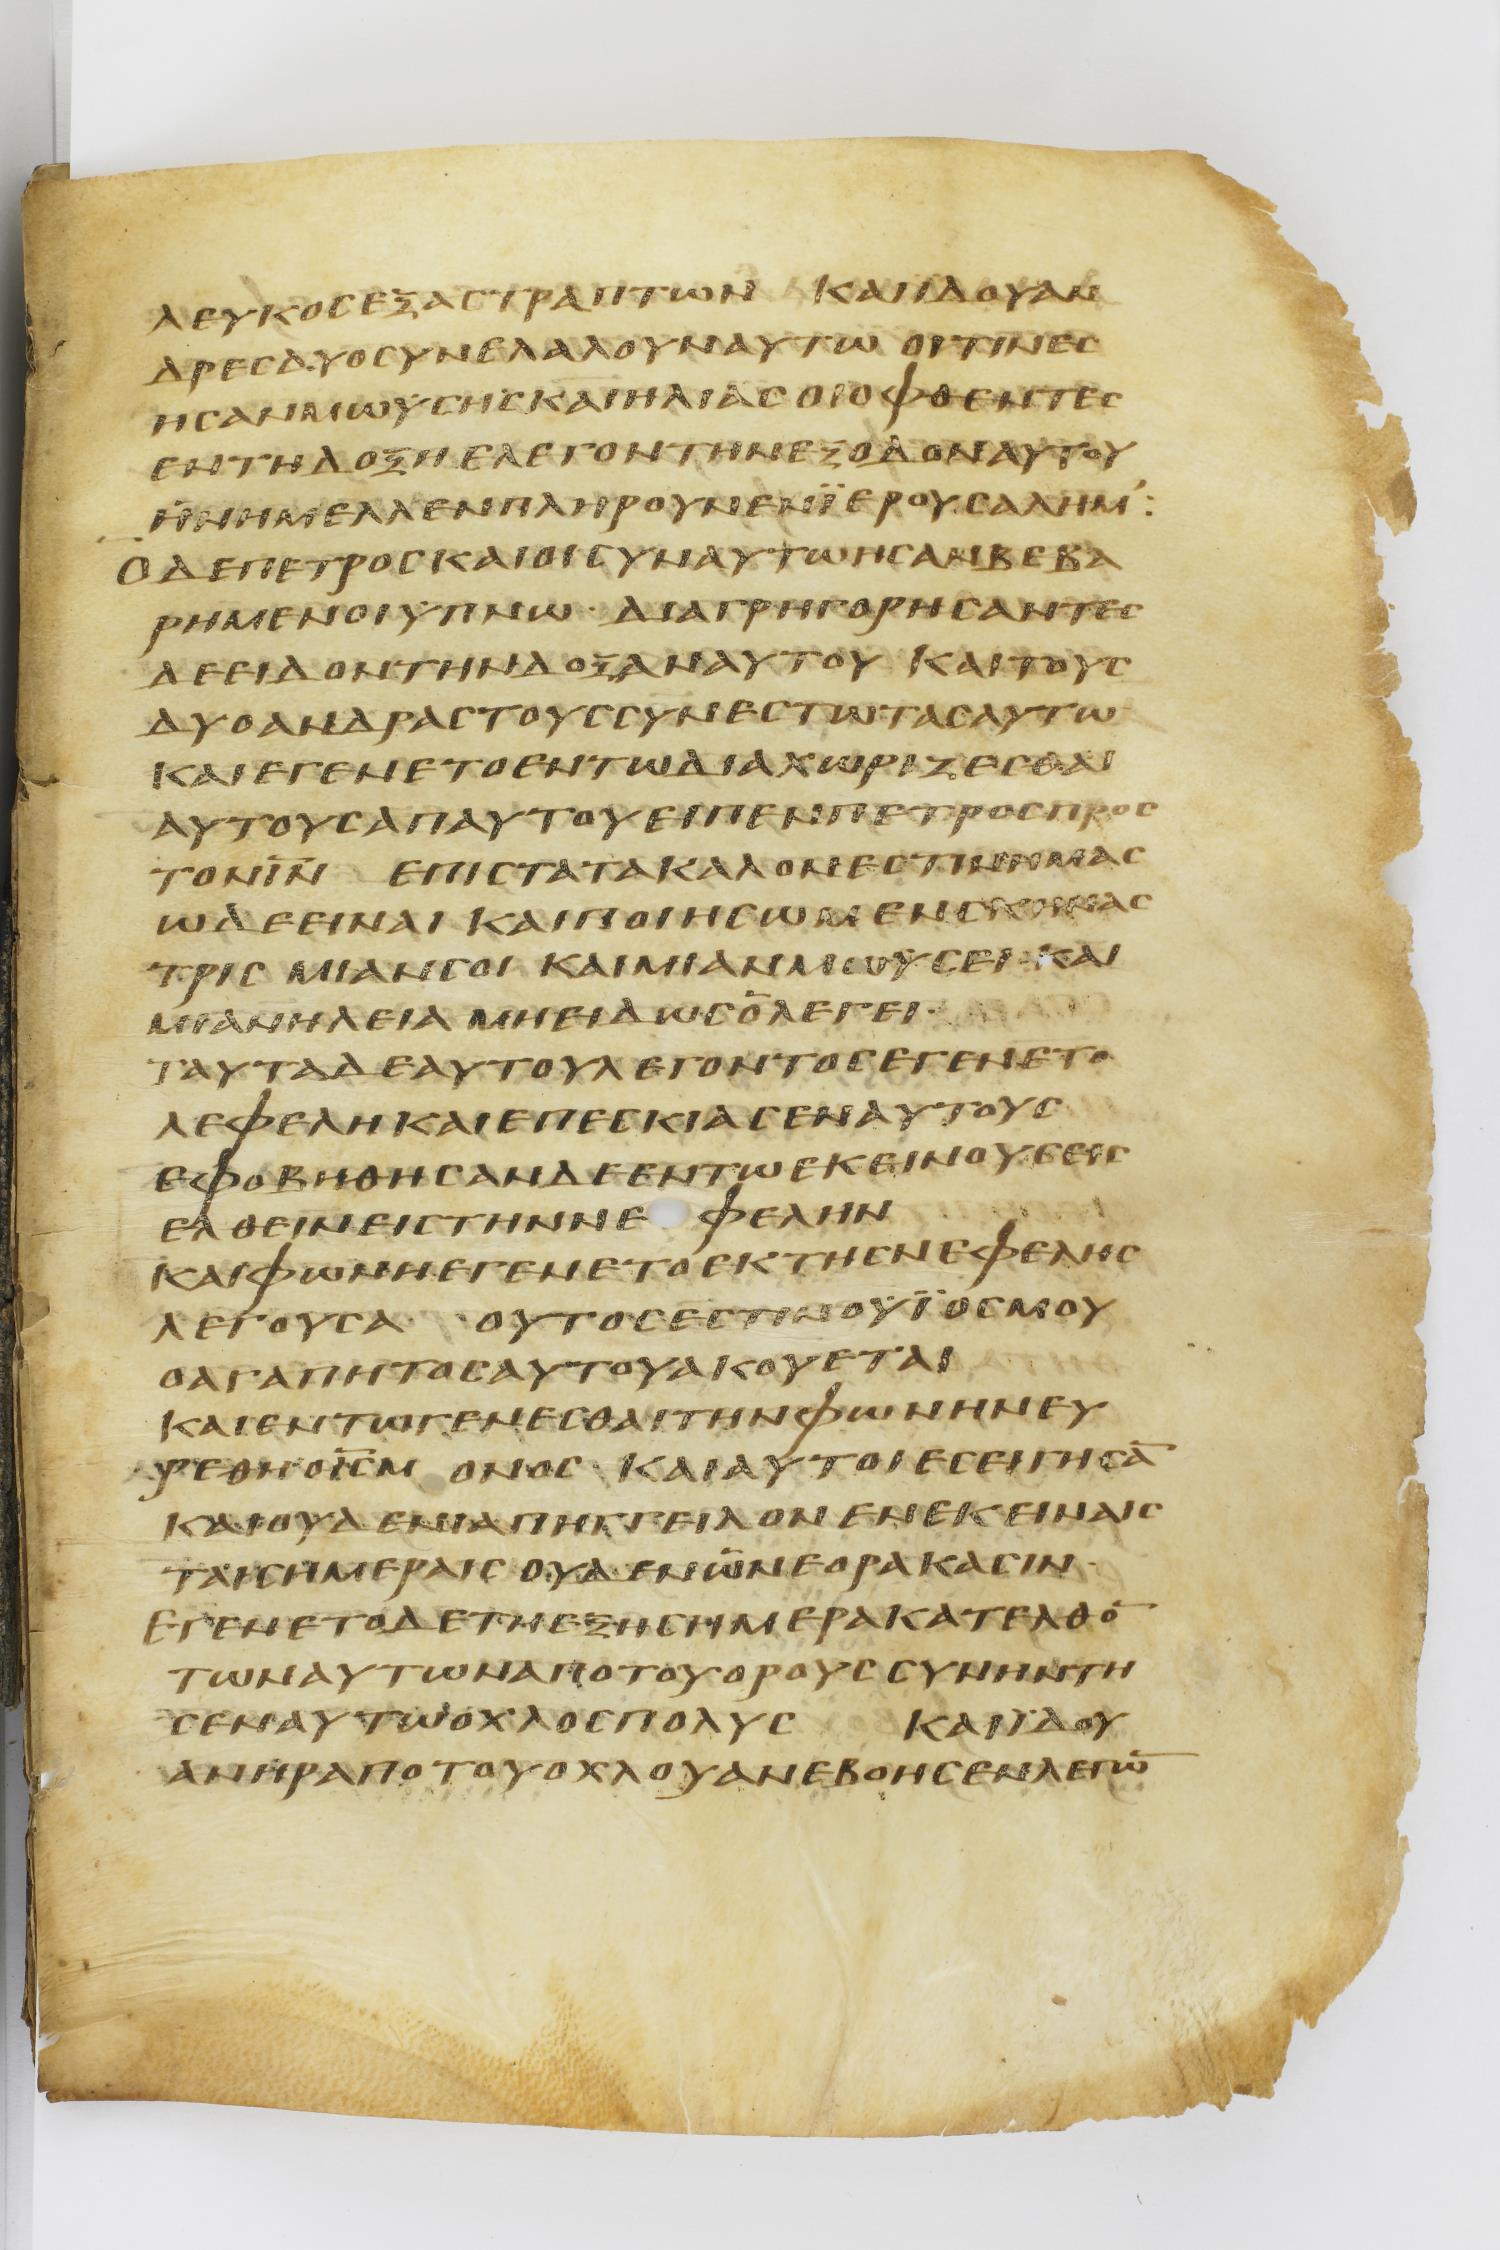 λευκοσεξαστραπτων καιϊδουαν
δρεσδυοσυνελαλουναυτω οιτινεσ
ησανμωυσησκαιηλιασ οιοφθεντεσ
ενταηδοξηελεγοντηνεξοδοναυτου
ἡνημελλενπληρουνενϊερουσαλημ:
Οδεπετροσκαιοισυναυτωησανβεβα
ρημενοιυπνω· διαγρηγορησαντεσ
δεειδοντηνδοξαναυτου καιτουσ
δυοανδραστουσσυνεστωτασαυτω
καιεγενετοεντωδιαχωριζεσθαι
αυτουσαπαυτουειπενπετροσπροσ
τονι̅ν̅ επιστατακαλονεστινημασ
ωδεειναι καιποιησωμενσκηνασ
τρισ μιανσοι καιμιανμωυσει και
μιανηλεια μηειδωσὁλεγει·
ταυταδεαυτουλεγοντοσεγενετο
νεφεληκαιεπεσκιασεναυτουσ
εφοβηθησανδεεντωεκεινουσεισ
ελθεινειστηννεφελην
καιφωνηεγενετοεκτησνεφελησ
λεγουσα ουτοσεστινουϊοσμου
οαγαπητοσαυτουακουεται
καιεντωγενεσθαιτηνφωνηνευ
ρεθηοι̅σ̅μονοσ καιαυτοιεσειγησα̅
καιουδενιαπηγγειλονενεκειναισ
ταισημεραισουδενὡνεορακασιν·
Εγενετοδετηεξησημερακατελθο̅
τωναυτωναποτουορουσσυνηντη
σεναυτωοχλοσπολυσ καιϊδου
ανηραποτουοχλουανεβοησενλεγω̅